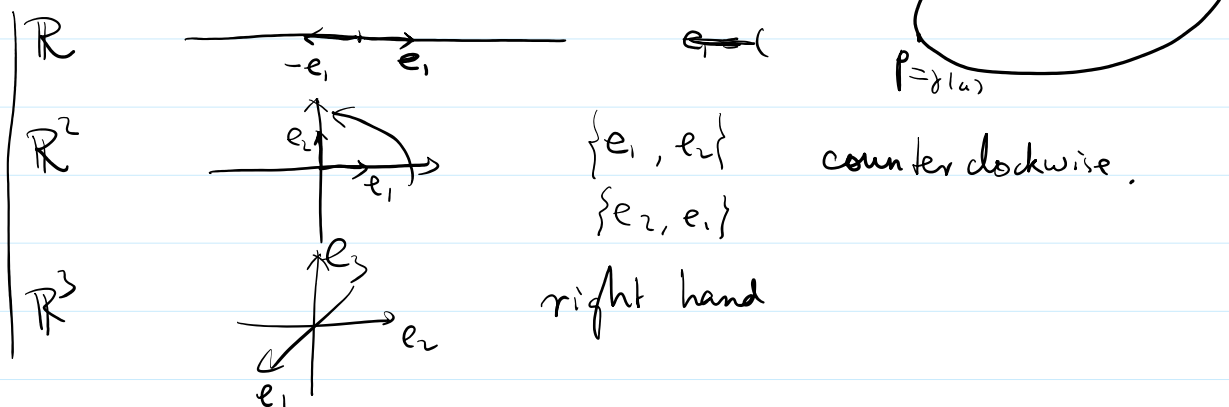 ℝ
-e₁ e₁
p = γ(a)
ℝ²
e₂
e₁
{e₁, e₂}
counterclockwise.
{e₂, e₁}
ℝ³
e₃
e₂
e₁
right hand